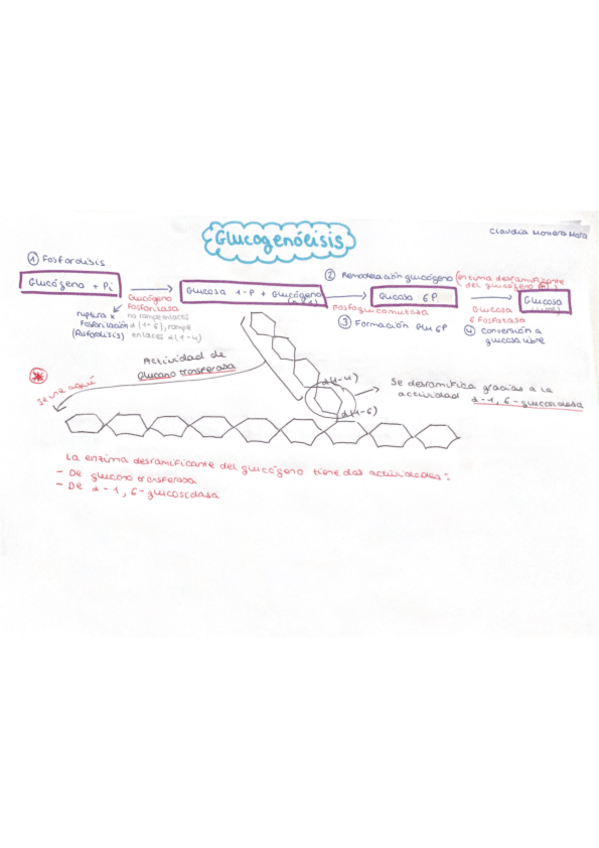 Glucogenólisis
Claudia Moñera Mora
① Fosforólisis
Glucógeno + Pi
Glucógeno
Fosforilasa
ruptura x
Fosforilación
no rompe enlaces
α(1-6), rompe
enlaces α(1-4)
Glucosa 1-P + Glucógeno
② Remodelación glucógeno (enzima desramificante
del glucógeno
Fosfoglucomutasa
Glucosa 6P
③ Formación Glu 6P
Glucosa
6 Fosfatasa
Glucosa
④ conversión a
glucosa libre
Actividad de
Glucano trasferasa
se une aquí
α(1-4)
α(1-6)
Se desramifica gracias a la
actividad α-1,6-glucosidasa
La enzima desramificante del glucógeno tiene dos actividades:
- De glucano trasferasa
- De α-1,6-glucosidasa